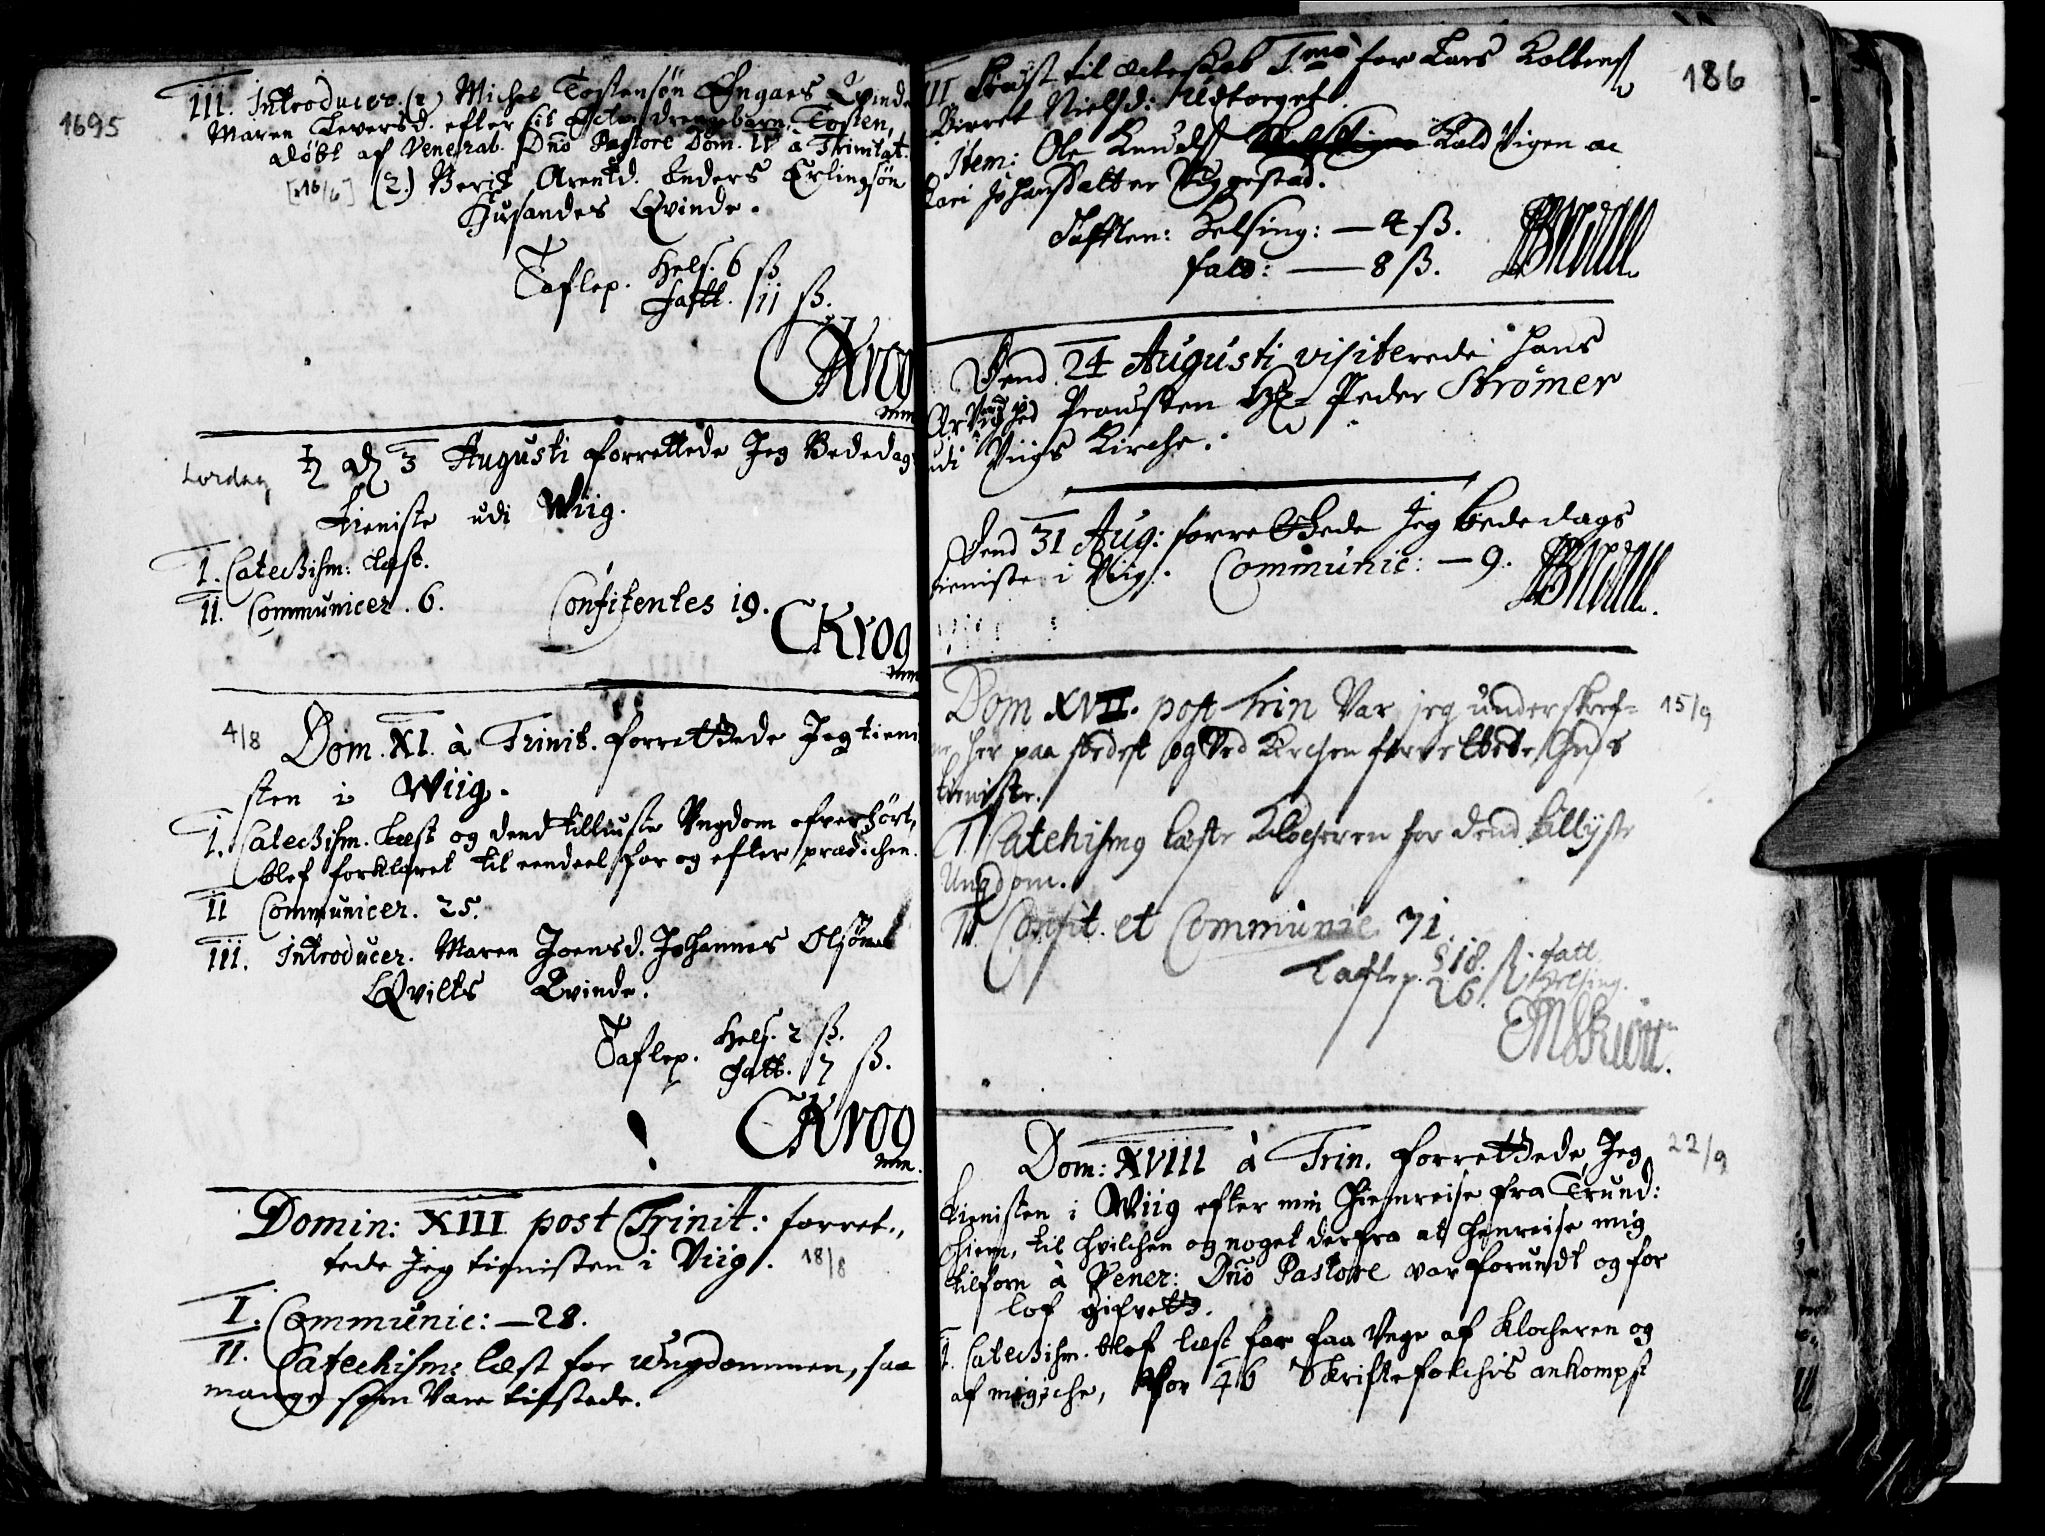 1695
III. Introducer. (1) Michel Tostensøn Engaes Qvinde
Maren Siversd. efter sit Echte drengebarn Tosten,
døbt af Venerab. Dno Pastore Dom. IV a Trinitat.
[16/6] (2.) Berit Arentd. Enders Erlingsøn
Husandes Qvinde.
Taflep. Hels. 6 ß
fatt. 11 ß.
CKrog
mm
Lordag ♄ d 3 Augusti forrettede Jeg Bededags
tieniste udi Wiig.
I. Catechism: læst.
II. Communicer. 6. Confitentes 19.
CKrog
mm
4/8 Dom. XI. à Trinit. forrettede Jeg tieni
sten i Wiig.
I. Catechism. læst og dend tilliuste Ungdom ofverhørt,
blef forklaret til eendeel for og efter prædichen.
II Communicer. 25.
III. Introducer. Maren Joensd. Johannes Olsøns
Qvilts Qvinde.
Taflep. Hels. 2 ß.
fatt. 7 ß.
CKrog
mm.
Domin: XIII post Trinit: forret-
tede Jeg tienisten i Viig. 18/8
I. Communic: — 28.
II. Catechism: læst for ungdommen, saa
mange som vare tilstede.
186
III til ægteskab Tmo for Lars
Birret Nielsd: Udtorget.
Item: Ole Knuds Kald Vigen oc
Kari Johansdatter Viggestad.
Tafflen: Helsing: — 4 ß.
fatt: — 8 ß.
Dend 24 Augusti visiterede hans
Ærværdighed Prousten Hr Peder Strømer
udi Viigs Kirche.
Dend 31 Aug: forrettede Jeg bededags
tieniste i Viig. Communic: — 9.
Dom XVII. post trin Var jeg underskref- 15/9
ne her paa stedet og ved Kirchen forrettede Guds
tieniste.
I Catehismus læste Klocheren for dend tillyste
Ungdom.
II Confit. et Communic. 71.
Taflep. 18. ß. fatt.
26. ß Helsing.
Dom: XVIII à Trin. forrettede Jeg 22/9
tienisten i Wiig efter min Hiemreise fra Trund:
hiem, til hvilchen og noget derfra at henreise mig
tilforn à Vener: Dno Pastore var forundt og for
lof gifvett.
I. Catechism. blef læst for faa Unge af Klocheren og
af mig iche, for 46 Skriftefolchis ankompst